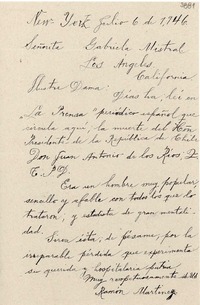 3881
New-York Julio 6 de 1,946.
Señorita Gabriela Mistral
Los Angeles,
California
Ilustre Dama:
Dias ha, lei en
La Prensa "periódico español que
circula aqui, la muerte del Hon.
Presidente de la República de Chile
Don Juan Antonio de los Rios,
Era un hombre muy popular
sencillo y afable con todos los que lo
trataron, y estadista de gran mentali-
dad.
Sirva ésta, de pésame, por la
irreparable pérdida que experimenta
su querida y hospitalaria patria
Muy respetuosamente de Ud.
Ramón Martinez